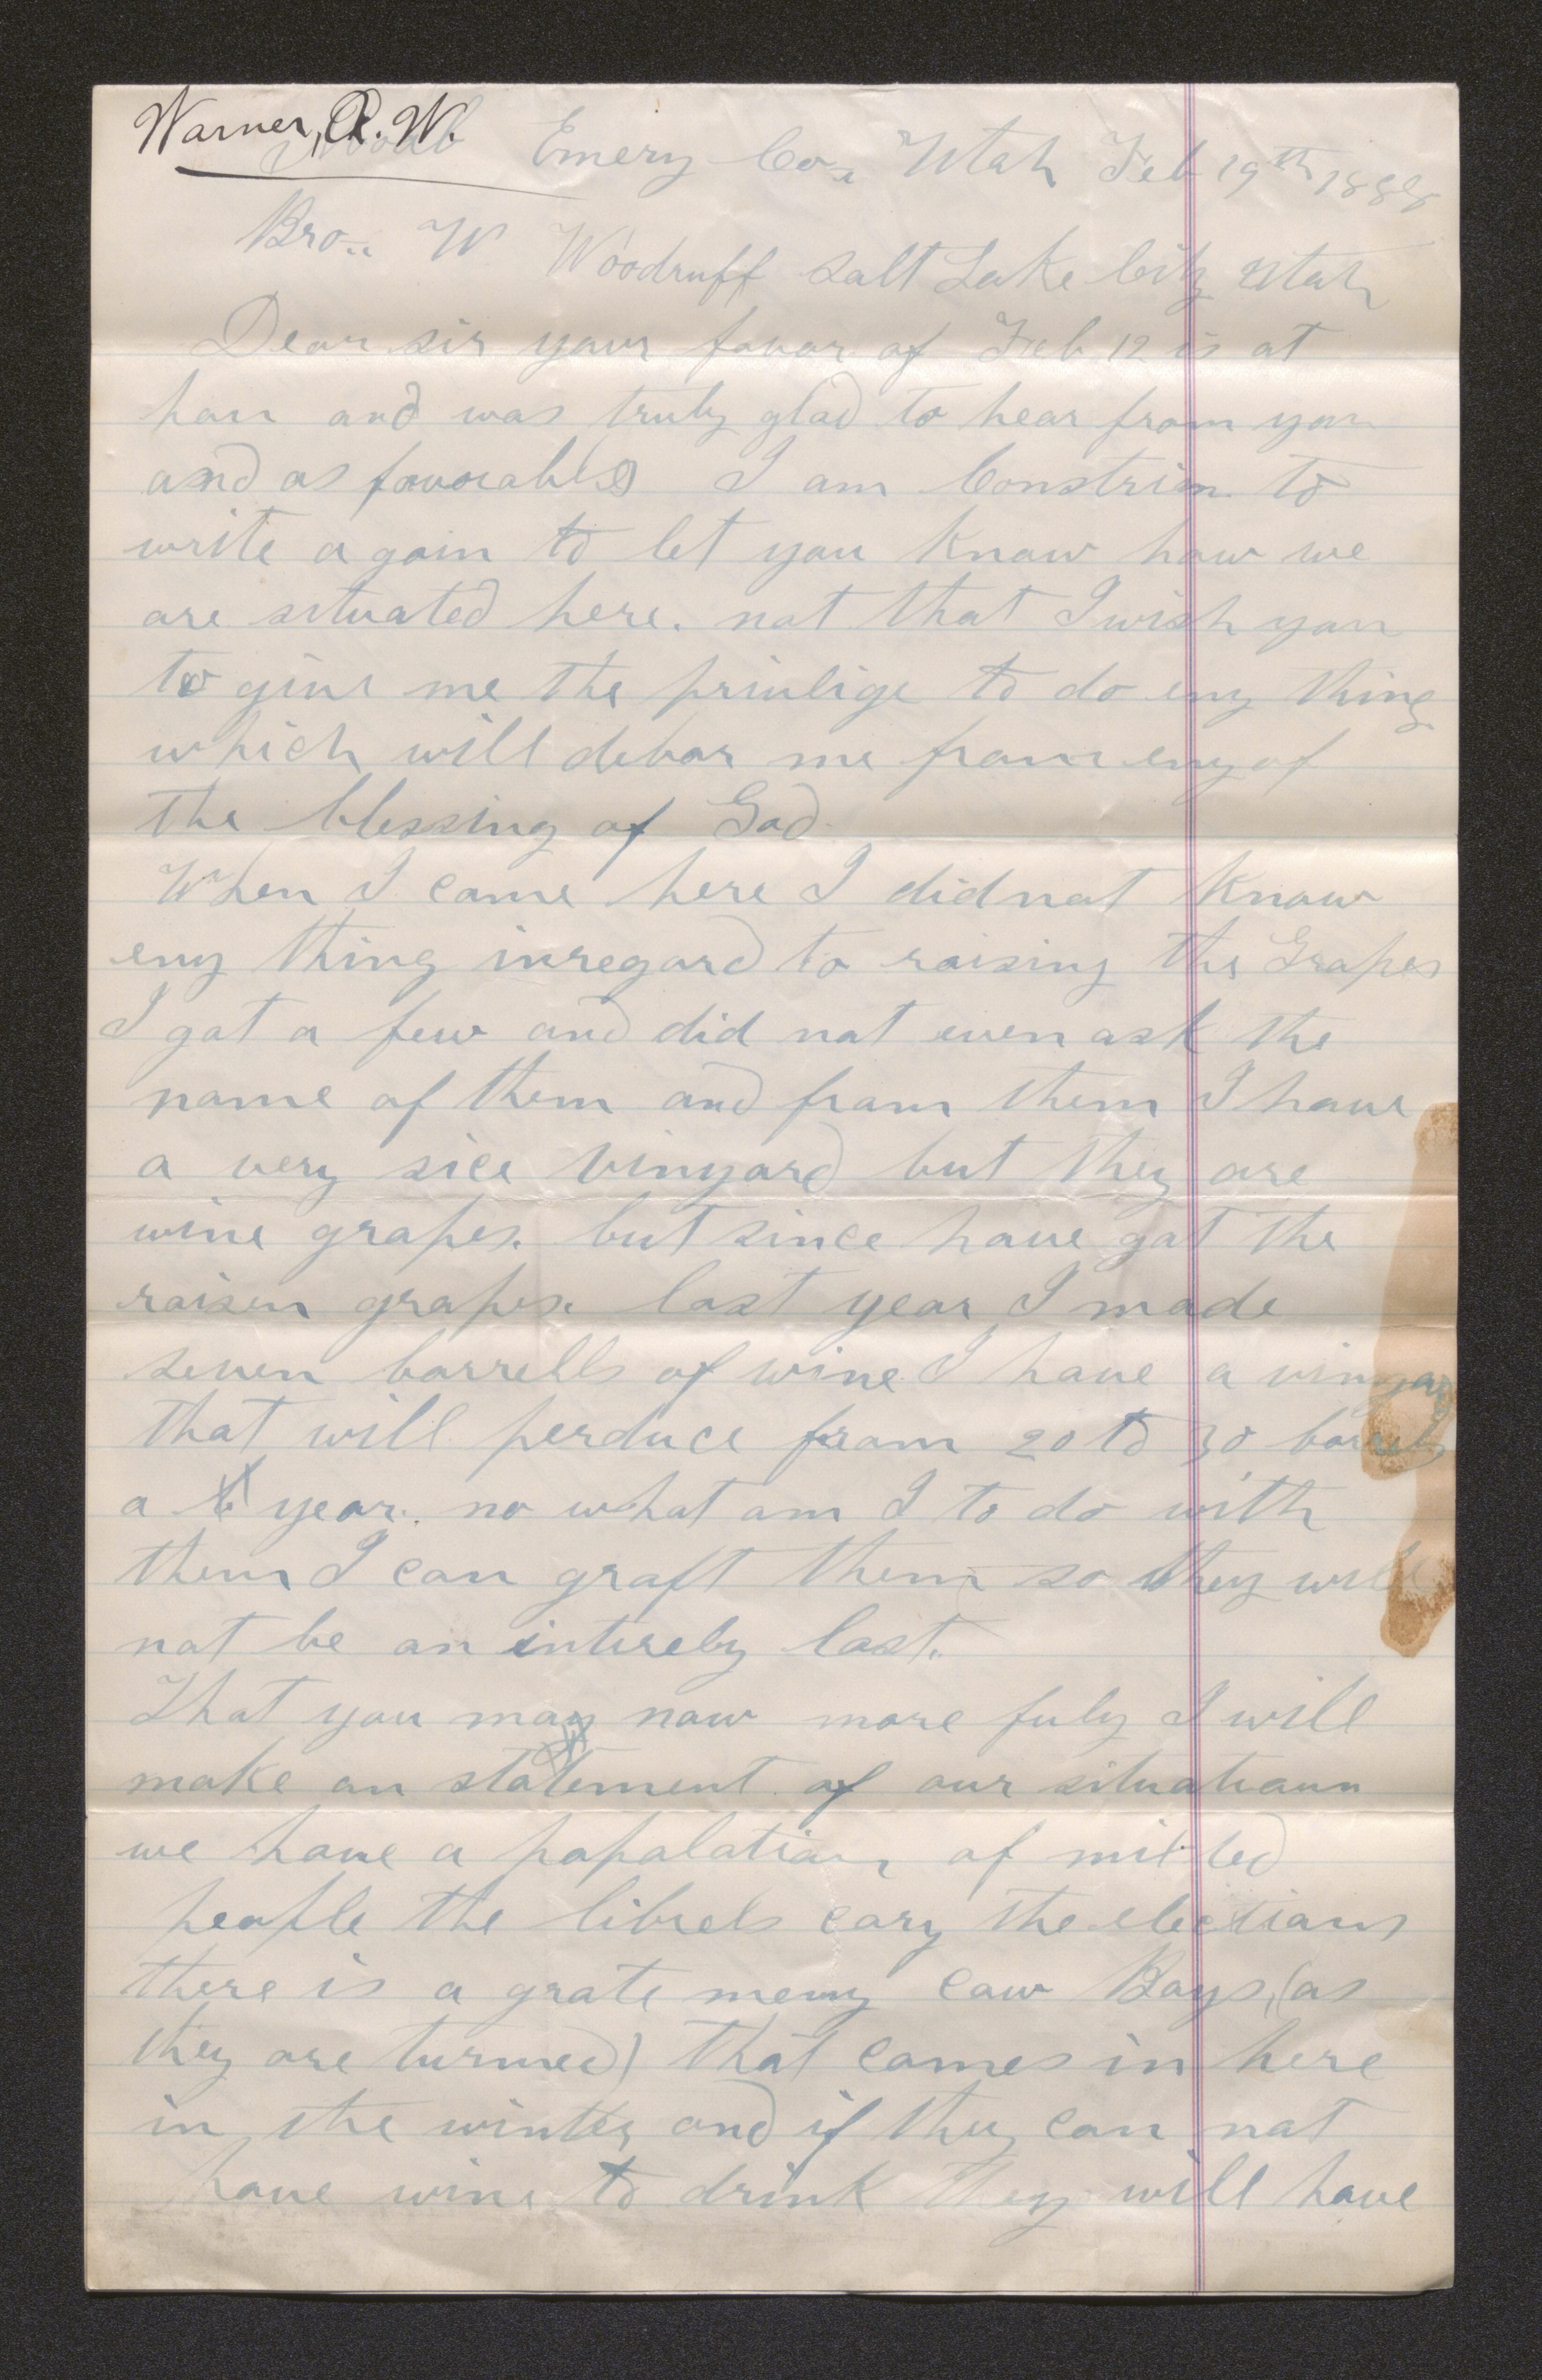 Warner, R. W.
Moab Emery Co., Utah Feb 19th 1888
Bro.. W Woodruff Salt Lake City Utah
Dear sir your favor of Feb 12 is at
han and was truly glad to hear from you
and as favorable I am Constrien to
write a gain to let you Know how we
are situated here. not that I wish you
to give me the privlige to do eny thing
which will debar me from eny of
the blessing of God.
When I came here I did not Know
eny thing inregard to raising the Grapes
I got a few and did not even ask the
name of them and from them I have
a very sice vinyard but they are
wine grapes. but since have got the
raisen grapes. last year I made
seven barrells of wine I have a vinyard
that will perduce from 20 to 30 barrels
a year. no what am I to do with
them I can graft them so they will
not be an intirely lost.
That you may now more fuly I will
make an statement of our situatioun
we have a popalation of mixted
people the librels cary the elections
there is a grate meny Cow Boys, (as
they are turmed) that comes in here
in the winter and if they can not
have wine to drink they will have